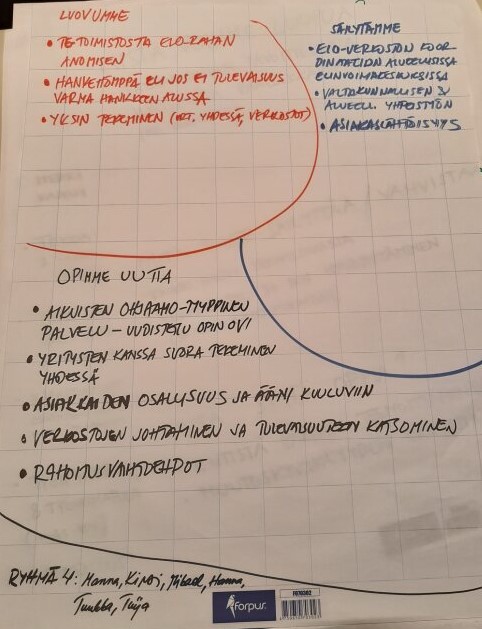 LUOVUMME
• TE-TOIMISTOSTA ELO-RAHAN
ANOMISEN
• HANKEHÖMPPÄ ELI JOS EI TULEVAISUUS
VARMA HANKKEEN ALUSSA
• YKSIN TEKEMINEN (VRT. YHDESSÄ, VERKOSTOT)
SÄILYTÄMME
• ELO-VERKOSTON KOOR
DINAATION ALUEELLISISSA
ELINVOIMAKESKUKSISSA
• VALTAKUNNALLISEN JA
ALUEELL. YHTEISTYÖN
• ASIAKASLÄHTÖISYYS
OPIMME UUTTA
• AIKUISTEN OHJAAMO-TYYPPINEN
PALVELU - UUDISTETTU OPIN OVI
• YRITYSTEN KANSSA SUORA TEKEMINEN
YHDESSÄ
• ASIAKKAIDEN OSALLISUUS JA ÄÄNI KUULUVIIN
• VERKOSTOJEN JOHTAMINEN JA TULEVAISUUTEEN KATSOMINEN
• RAHOITUSVAIHTOEHDOT
RYHMÄ 4: Hanna, Kirsi, Mikael, Hanna,
Tuukka, Tuija
Forpus